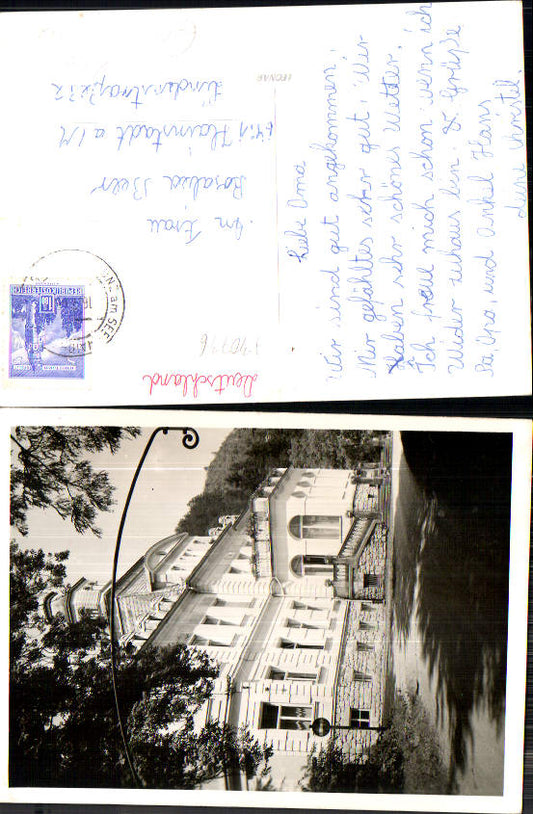 Liebe Oma
Wir sind gut angekommen,
Mir gefällt es sehr gut, Wir
haben sehr schönes Wetter.
Ich freue mich schon wenn ich
Wieder zuhaus bin. Gräße
Opa, und Onkel Hans
Deine Christel
An Frau
Rosalia Beer
Hainstadt a/M
Lindenstraße 32
Deutschland
REPUBLIK ÖSTERREICH
AM SEE